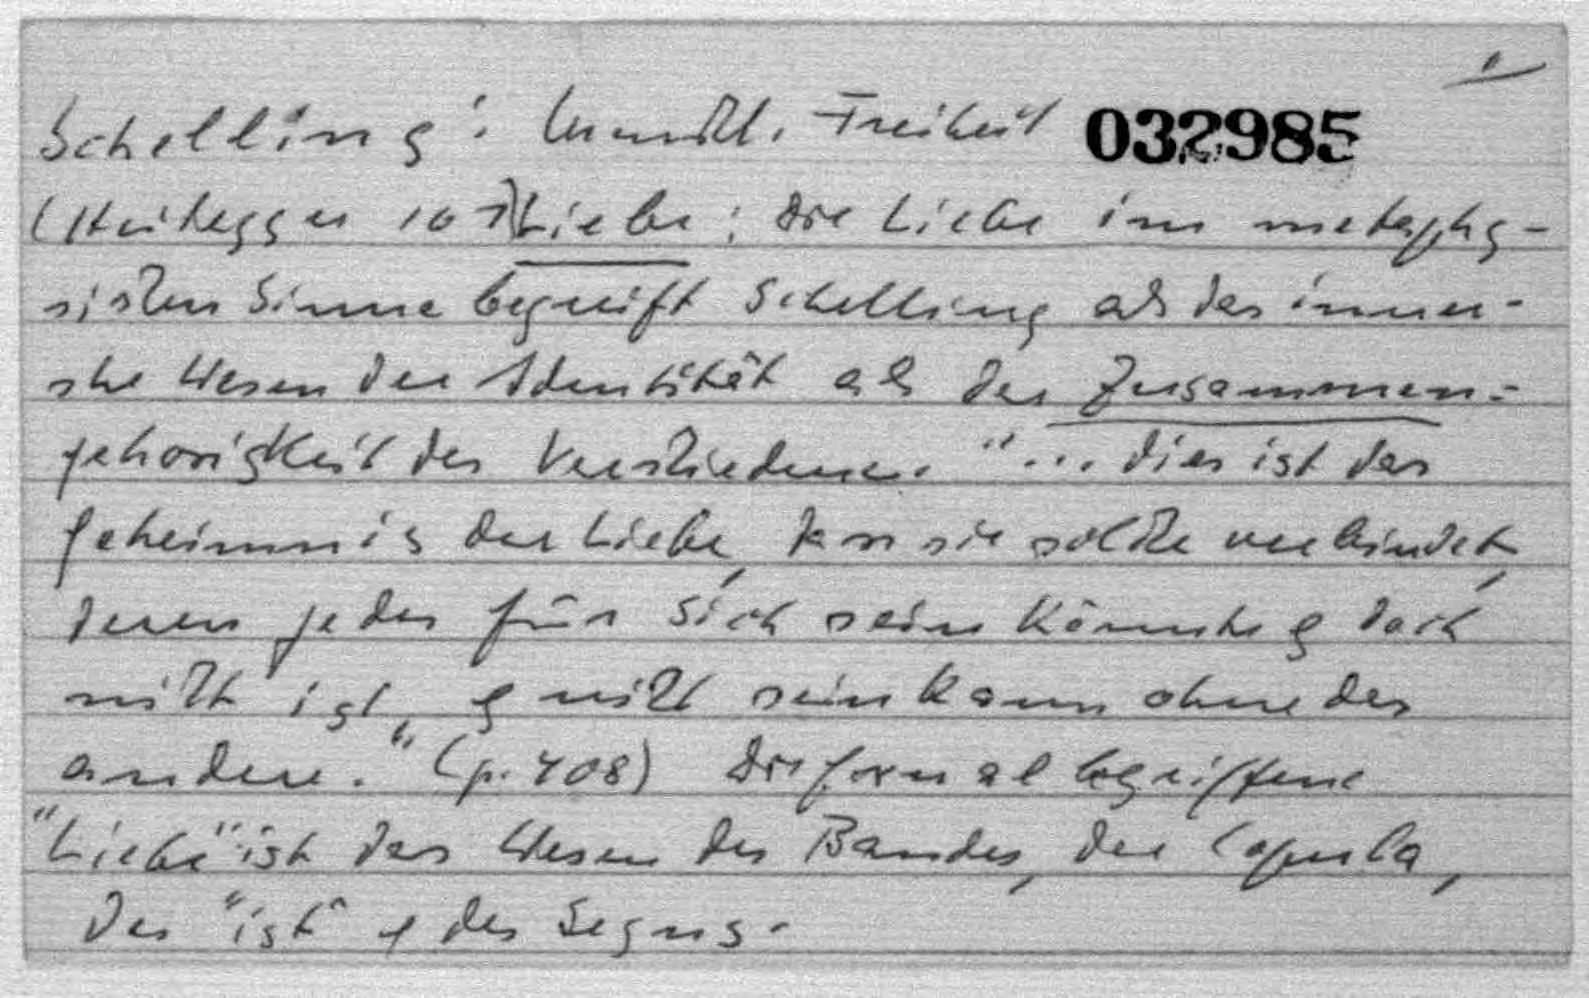 Schelling: menschl. Freiheit 032985
(Heidegger 107) Liebe: Die Liebe im metaphy-
sischen Sinne begreift Schelling als das inner-
ste Wesen der Identität als der Zusammen-
gehörigkeit des Verschiedenen. "... dies ist das
Geheimnis der Liebe, dass sie solche verbindet,
deren jedes für sich sein könnte & doch
nicht ist, & nicht sein kann ohne das
andere." (p. 408) Die formal begriffene
"Liebe" ist das Wesen des Bandes, der Copula,
des "ist" & des Seyns.